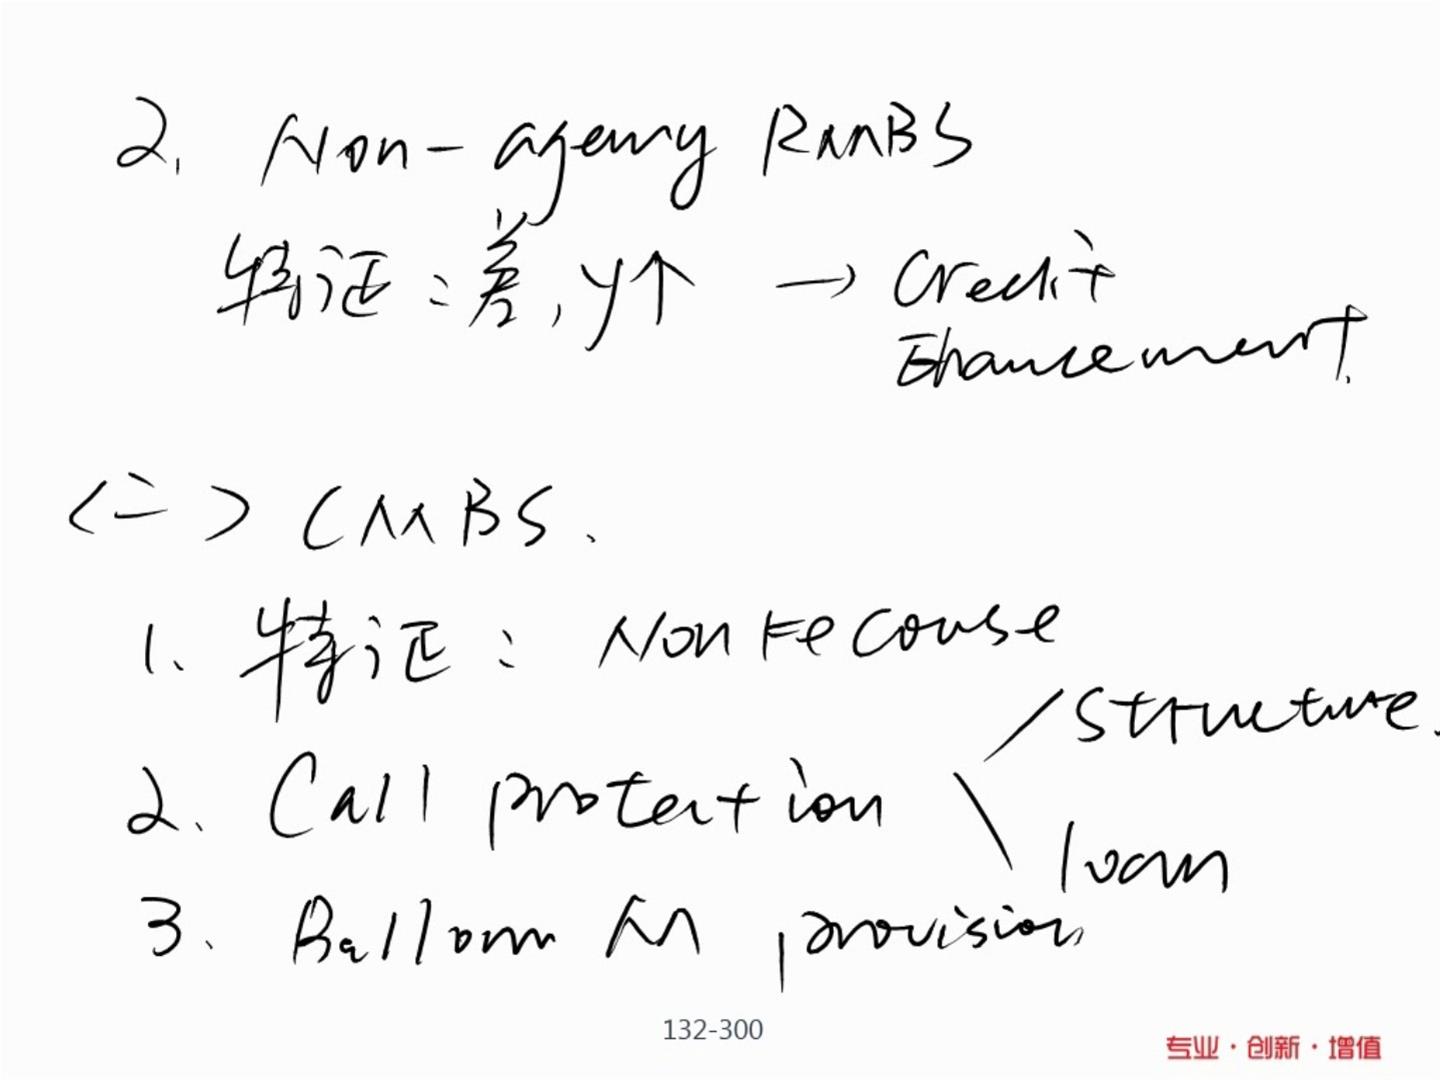 2. Non-agency RMBS
特证：差，y↑ → Credit
Enhancement.
<二> CMBS.
1. 特证： Non recourse
2. Call protection / structure.
\ loan
3. Balloon M provision
132-300
专业·创新·增值